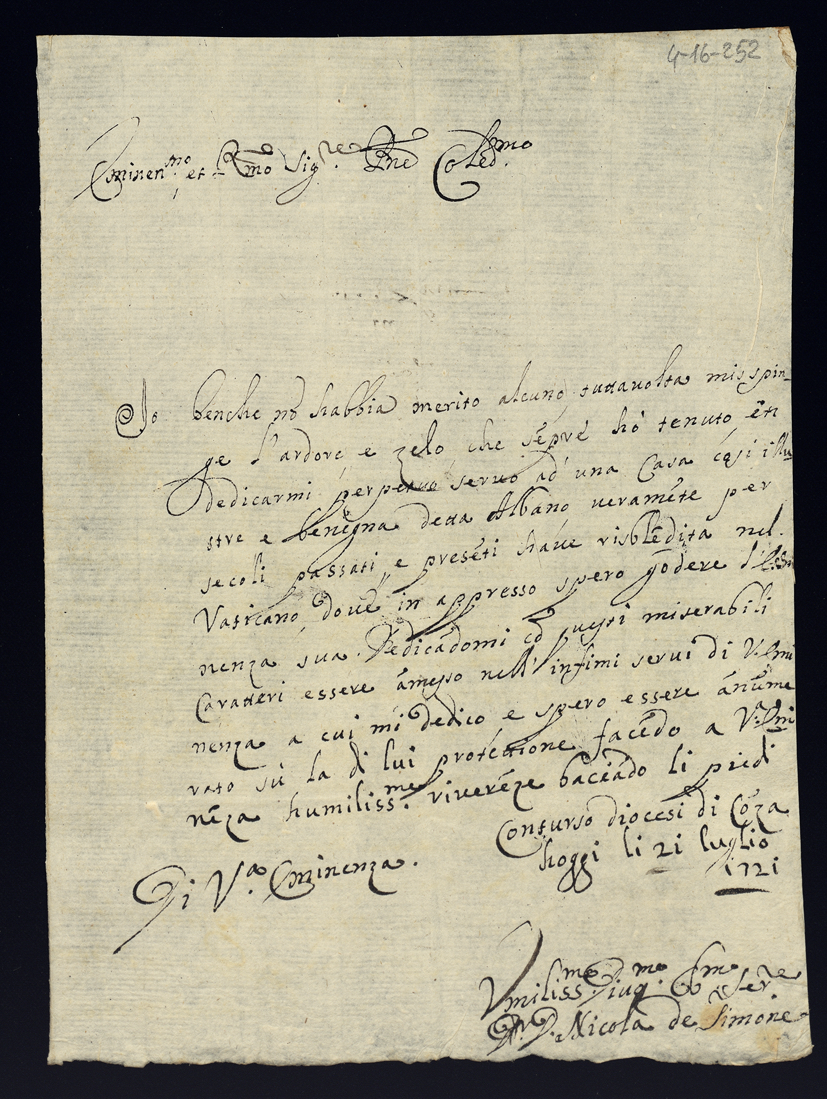 4-16-252
Eminen.mo et R.mo Sig.re P.ne Col.mo
Io benche nō habbia merito alcuno tuttavolta mi spin-
ge l'ardore e zelo, che sēpre hò tenuto ēti
dedicarmi perpetuo servo ad una Casa cosi illu
stre e benigna detta Albano veramēte per
secoli passati, e presēti have risblēdita nel
Vaticano, dove in appresso spero godere l'Emi
nenza sua. Dedicādomi cō questi miserabili
Caratteri essere āmesso nell'infimi servi di V. Emi
nenza a cui mi dedico e spero essere ānume
rato sù la di lui protettione facēdo a V.a Emi
nēza humiliss.me riverēze baciādo li piedi
Di V.a Eminenza.
Contursio diocesi di Cōza
hoggi li 21 luglio
1721
Umiliss.mo Div.mo Ob.mo Ser.re
D. Nicola de Simone